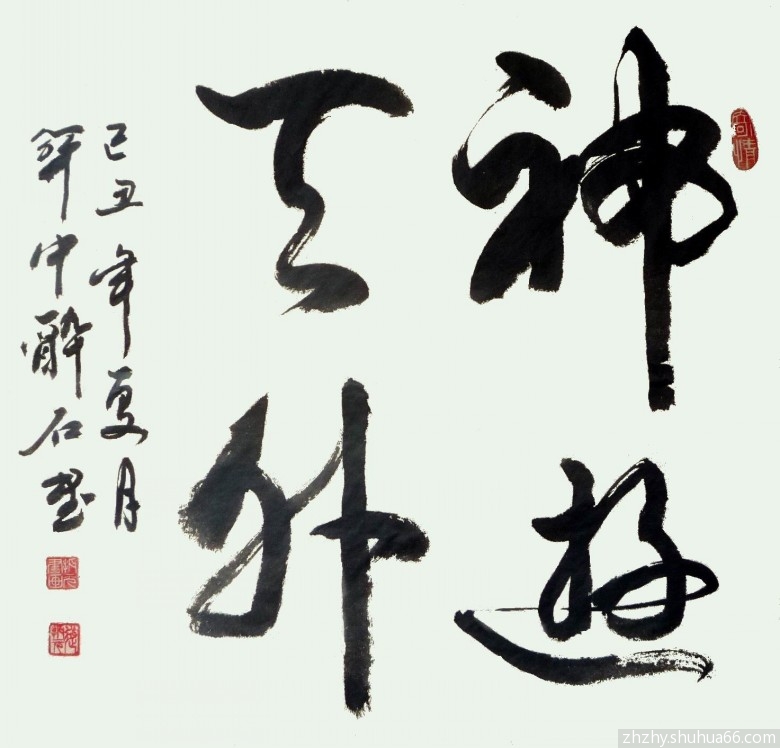 神遊
天外
己丑年夏月
中醉石
寄情
zhzhy.shuhua66.com